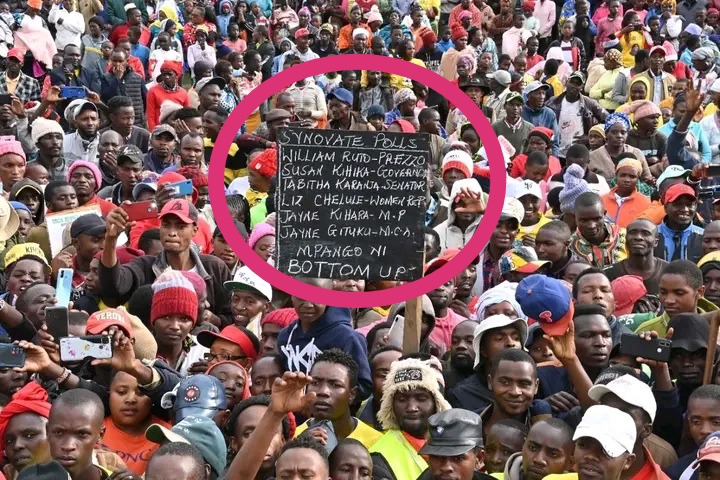 SYNOVATE POLLS
WILLIAM RUTO-PREZZO
SUSAN KIHIKA-GOVERNOR
TABITHA KARANJA-SENATOR
LIZ CHELULE-WOMEN REP
JAYNE KIHARA-M.P
JAYNE GITUKU-M.C.A
MPANGO NI
BOTTOM UP